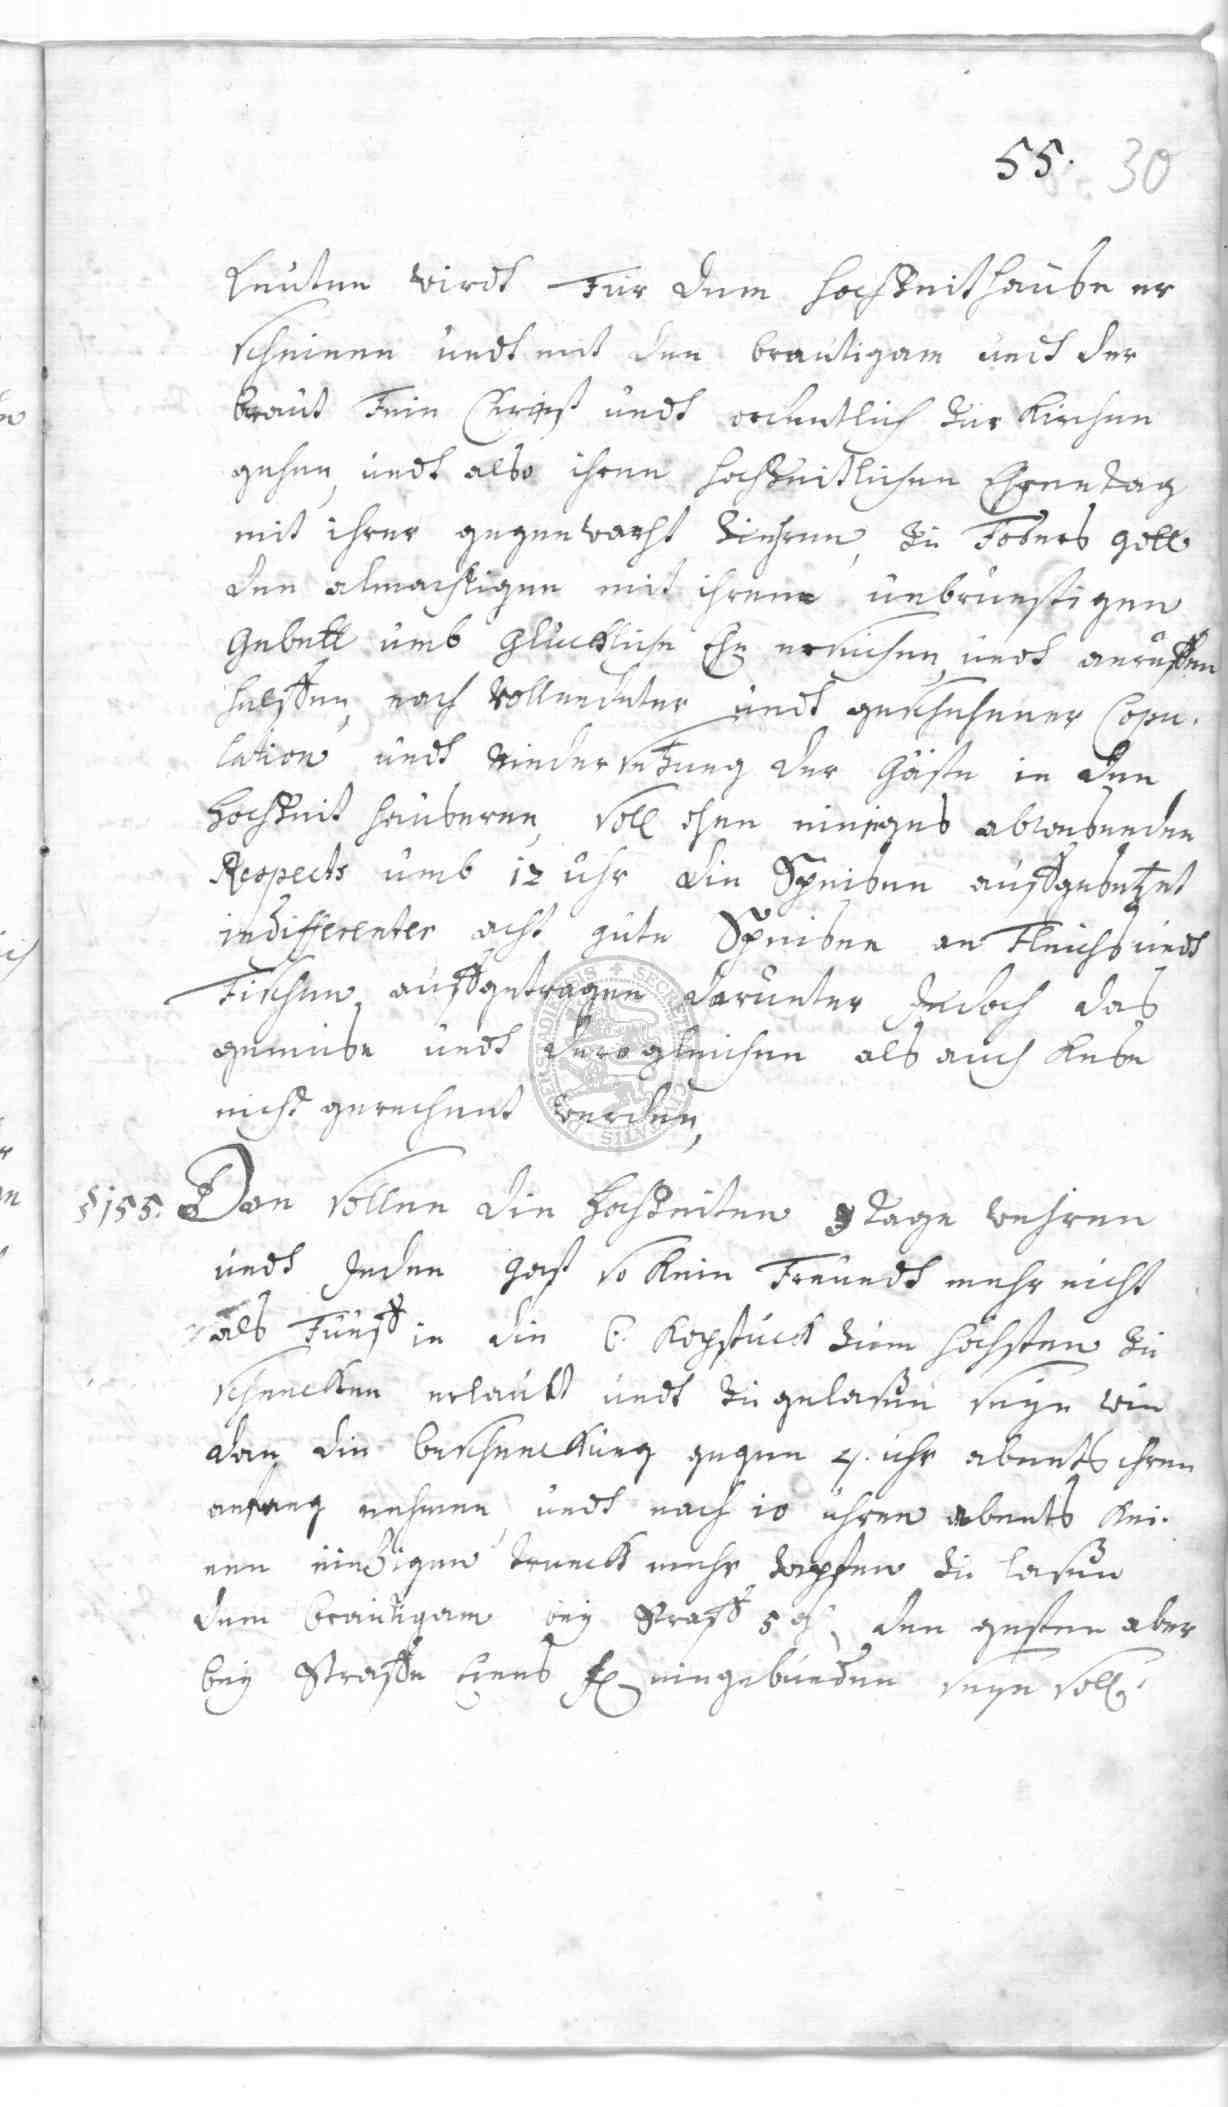 55. 30
Leuten wirdt für dem Hochzeit hause er
scheinen undt mit den brautigam undt der
braut fein Christ undt ordentlich zur Kirchen
gehen, undt also ihren hochzeitlichen Ehrentag
mit ihrer gegenwarht ziehren, zu foders gott
den almachtigen mit ihrem unbrunstigen
Gebett umb glückliche Ehe ersuchen undt anruffen
helffen, nach vollendeter undt geschehener Copu.
lation undt niedersetzung der gäste in den
Hochzeit häuseren, soll ohne einiges absehenden
Respects umb 12 uhr die Speisen auffgesetzet
indifferenter acht gute Speisen an fleichs undt
fischen auffgetragen darunter Jedoch das
gemüse undt dero gleichen als auch Kese
nicht gerechnet werden,
§ 155. Dan sollen die Hochzeiten 3 tage wehren
undt Jeden gast so kein freundt mehr nicht
als fünff in die 6. Kopstück zum höchsten zu
schencken erlaubt undt zugelaßen seye wie
dan die beschenckung gegen 4. uhr abents ihren
anfang nehmen, undt nach 10 uhren abents kei.
nen eintzigen trunck mehr zapfen zu laßen
dem brautigam bey Straff 5 den gesten aber
bey Straffe Eines eingebunden seyn soll.
SECRET CIVITATIS SILVA